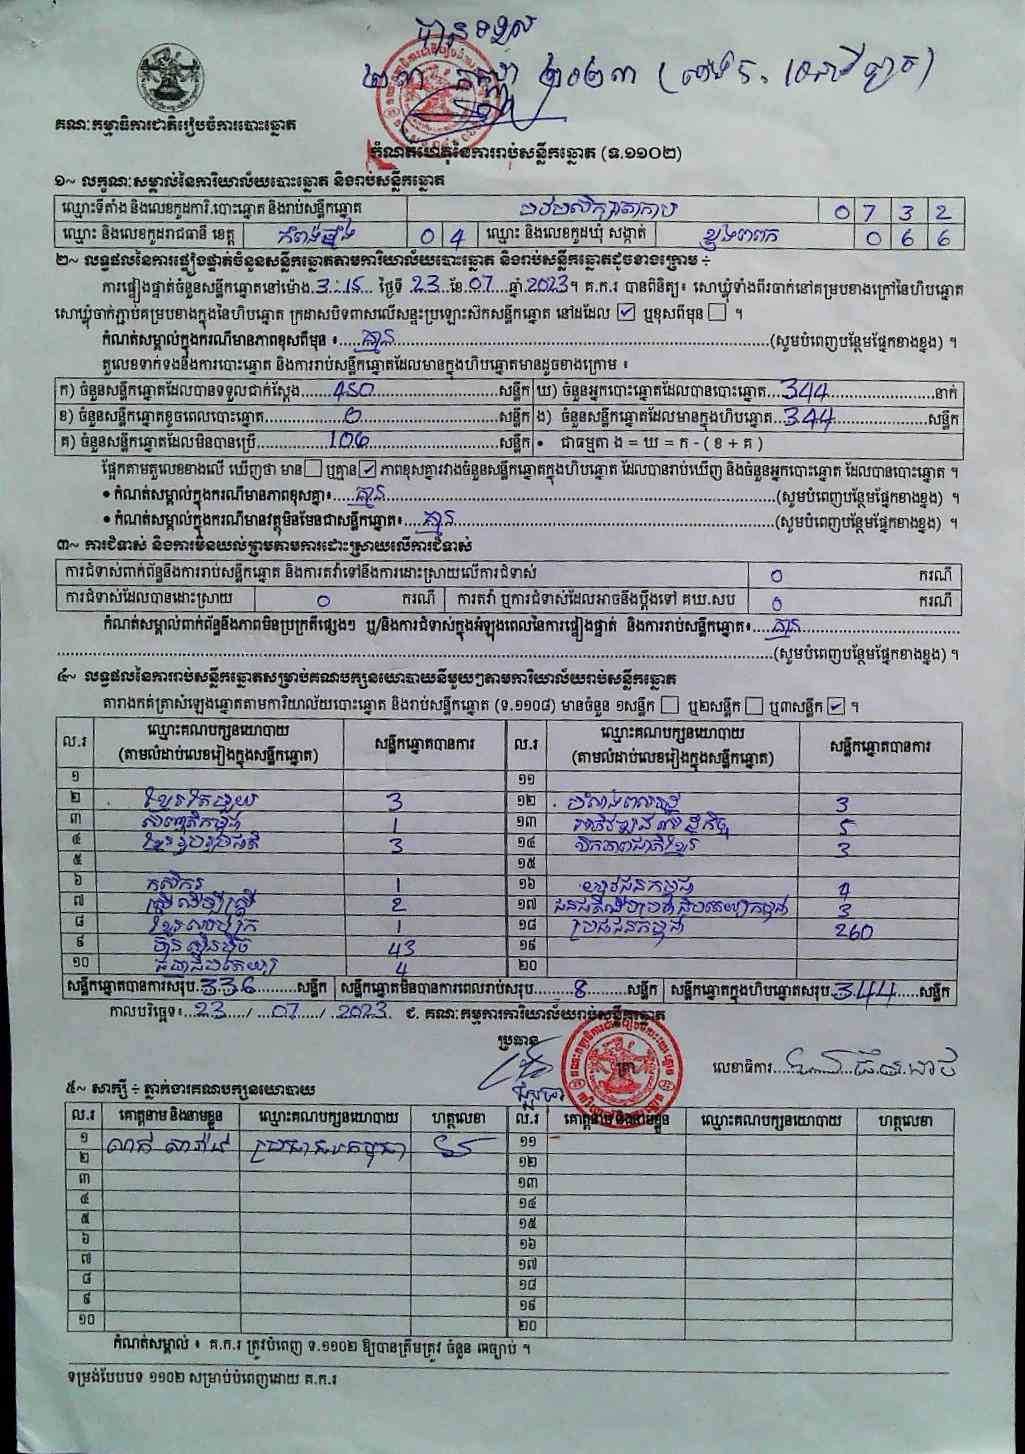 បានទទួល
២៣ កក្កដា ២០២៣
គណៈកម្មាធិការជាតិរៀបចំការបោះឆ្នោត
កំណត់ហេតុនៃការរាប់សន្លឹកឆ្នោត (ទ.១១០២)
១~ លក្ខណៈសម្គាល់នៃការិយាល័យបោះឆ្នោត និងរាប់សន្លឹកឆ្នោត
ឈ្មោះទីតាំង និងលេខកូដការិ.បោះឆ្នោត និងរាប់សន្លឹកឆ្នោត 0 7 3 2
ឈ្មោះ និងលេខកូដរាជធានី ខេត្ត កំពង់ឆ្នាំង 0 4 ឈ្មោះ និងលេខកូដឃុំ សង្កាត់ 0 6 6
២~ លទ្ធផលនៃការផ្ទៀងផ្ទាត់ចំនួនសន្លឹកឆ្នោតតាមការិយាល័យបោះឆ្នោត និងរាប់សន្លឹកឆ្នោតដូចខាងក្រោម ÷
ការផ្ទៀងផ្ទាត់ចំនួនសន្លឹកឆ្នោតនៅម៉ោង.3:15... ថ្ងៃទី .23..ខែ.07....ឆ្នាំ.2023។ គ.ក.រ បានពិនិត្យ៖ សោឃ្លុំទាំងពីរចាក់នៅគម្របខាងក្រៅនៃហិបឆ្នោត
សោឃ្លុំចាក់ភ្ជាប់គម្របខាងក្នុងនៃហិបឆ្នោត ក្រដាសបិទពាសលើសន្ទះប្រឡោះស៊កសន្លឹកឆ្នោត នៅដដែល ☑ ឬខុសពីមុន ☐ ។
កំណត់សម្គាល់ក្នុងករណីមានភាពខុសពីមុន ៖.....គ្មាន.....(សូមបំពេញបន្ថែមផ្នែកខាងខ្នង) ។
តួលេខទាក់ទងនឹងការបោះឆ្នោត និងការរាប់សន្លឹកឆ្នោតដែលមានក្នុងហិបឆ្នោតមានដូចខាងក្រោម ៖
ក) ចំនួនសន្លឹកឆ្នោតដែលបានទទួលជាក់ស្តែង.......450.......សន្លឹក ឃ) ចំនួនអ្នកបោះឆ្នោតដែលបានបោះឆ្នោត...344.......នាក់
ខ) ចំនួនសន្លឹកឆ្នោតខូចពេលបោះឆ្នោត.......0.......សន្លឹក ង) ចំនួនសន្លឹកឆ្នោតដែលមានក្នុងហិបឆ្នោត...344.......សន្លឹក
គ) ចំនួនសន្លឹកឆ្នោតដែលមិនបានប្រើ.......106.......សន្លឹក • ជាធម្មតា ង = ឃ = ក - ( ខ + គ )
ផ្អែកតាមតួលេខខាងលើ ឃើញថា មាន ☐ ឬគ្មាន ☑ ភាពខុសគ្នារវាងចំនួនសន្លឹកឆ្នោតក្នុងហិបឆ្នោត ដែលបានរាប់ឃើញ និងចំនួនអ្នកបោះឆ្នោត ដែលបានបោះឆ្នោត ។
• កំណត់សម្គាល់ក្នុងករណីមានភាពខុសគ្នា៖.....គ្មាន.....(សូមបំពេញបន្ថែមផ្នែកខាងខ្នង) ។
• កំណត់សម្គាល់ក្នុងករណីមានវត្ថុមិនមែនជាសន្លឹកឆ្នោត៖.....គ្មាន.....(សូមបំពេញបន្ថែមផ្នែកខាងខ្នង) ។
៣~ ការជំទាស់ និងការមិនយល់ព្រមតាមការដោះស្រាយលើការជំទាស់
ការជំទាស់ពាក់ព័ន្ធនឹងការរាប់សន្លឹកឆ្នោត និងការតវ៉ាទៅនឹងការដោះស្រាយលើការជំទាស់ 0 ករណី
ការជំទាស់ដែលបានដោះស្រាយ 0 ករណី ការតវ៉ា ឬការជំទាស់ដែលអាចនឹងប្តឹងទៅ គឃ.សប 0 ករណី
កំណត់សម្គាល់ពាក់ព័ន្ធនឹងភាពមិនប្រក្រតីផ្សេងៗ ឬ/និងការជំទាស់ក្នុងអំឡុងពេលនៃការផ្ទៀងផ្ទាត់ និងការរាប់សន្លឹកឆ្នោត៖.....គ្មាន.....
.....(សូមបំពេញបន្ថែមផ្នែកខាងខ្នង) ។
៤~ លទ្ធផលនៃការរាប់សន្លឹកឆ្នោតសម្រាប់គណបក្សនយោបាយនីមួយៗតាមការិយាល័យរាប់សន្លឹកឆ្នោត
តារាងកត់ត្រាសំឡេងឆ្នោតតាមការិយាល័យបោះឆ្នោត និងរាប់សន្លឹកឆ្នោត (ទ.១១០៨) មានចំនួន ១សន្លឹក ☐ ឬ២សន្លឹក ☐ ឬ៣សន្លឹក ☑ ។
ល.រ ឈ្មោះគណបក្សនយោបាយ (តាមលំដាប់លេខរៀងក្នុងសន្លឹកឆ្នោត) សន្លឹកឆ្នោតបានការ ល.រ ឈ្មោះគណបក្សនយោបាយ (តាមលំដាប់លេខរៀងក្នុងសន្លឹកឆ្នោត) សន្លឹកឆ្នោតបានការ
១ ១១
២ ខ្មែរតែមួយ 3 ១២ 3
៣ សញ្ជាតិកម្ពុជា 1 ១៣ 5
៤ ខ្មែររួបរួមជាតិ 3 ១៤ ឯកភាពជាតិខ្មែរ 3
៥ ១៥
៦ កសិករ 1 ១៦ យុវជនកម្ពុជា
៧ ស្ត្រីដើម្បីស្ត្រី 2 ១៧ ជនជាតិដើមប្រជាធិបតេយ្យកម្ពុជា 3
៨ 1 ១៨ ប្រជាជនកម្ពុជា 260
៩ ហ៊្វុនស៊ិនប៉ិច 43 ១៩
១០ 4 ២០
សន្លឹកឆ្នោតបានការសរុប.336.....សន្លឹក សន្លឹកឆ្នោតមិនបានការពេលរាប់សរុប.....8.....សន្លឹក សន្លឹកឆ្នោតក្នុងហិបឆ្នោតសរុប.344.....សន្លឹក
កាលបរិច្ឆេទ៖...23..../...07..../...2023 ជ. គណៈកម្មការការិយាល័យរាប់សន្លឹកឆ្នោត
ប្រធាន
ត្រា លេខាធិការ
៥~ សាក្សី ÷ ភ្នាក់ងារគណបក្សនយោបាយ
ល.រ គោត្តនាម និងនាមខ្លួន ឈ្មោះគណបក្សនយោបាយ ហត្ថលេខា ល.រ គោត្តនាម និងនាមខ្លួន ឈ្មោះគណបក្សនយោបាយ ហត្ថលេខា
១ ប្រជាជនកម្ពុជា ១១
២ ១២
៣ ១៣
៤ ១៤
៥ ១៥
៦ ១៦
៧ ១៧
៨ ១៨
៩ ១៩
១០ ២០
កំណត់សម្គាល់ ៖ គ.ក.រ ត្រូវបំពេញ ទ.១១០២ ឱ្យបានត្រឹមត្រូវ ចំនួន ៣ច្បាប់ ។
ទម្រង់បែបបទ ១១០២ សម្រាប់បំពេញដោយ គ.ក.រ